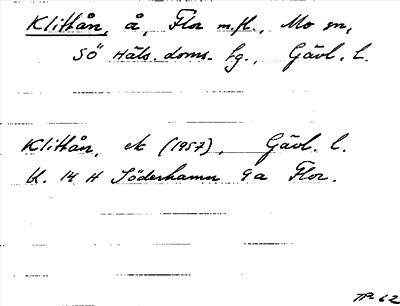 Klittån, å, Flor m.fl., Mo sn,
SÖ Häls. doms. lg., Gävl. l.
Klittån, ek (1957), Gävl. l.
K. 14 H Söderhamn 9a Flor.
TP 62